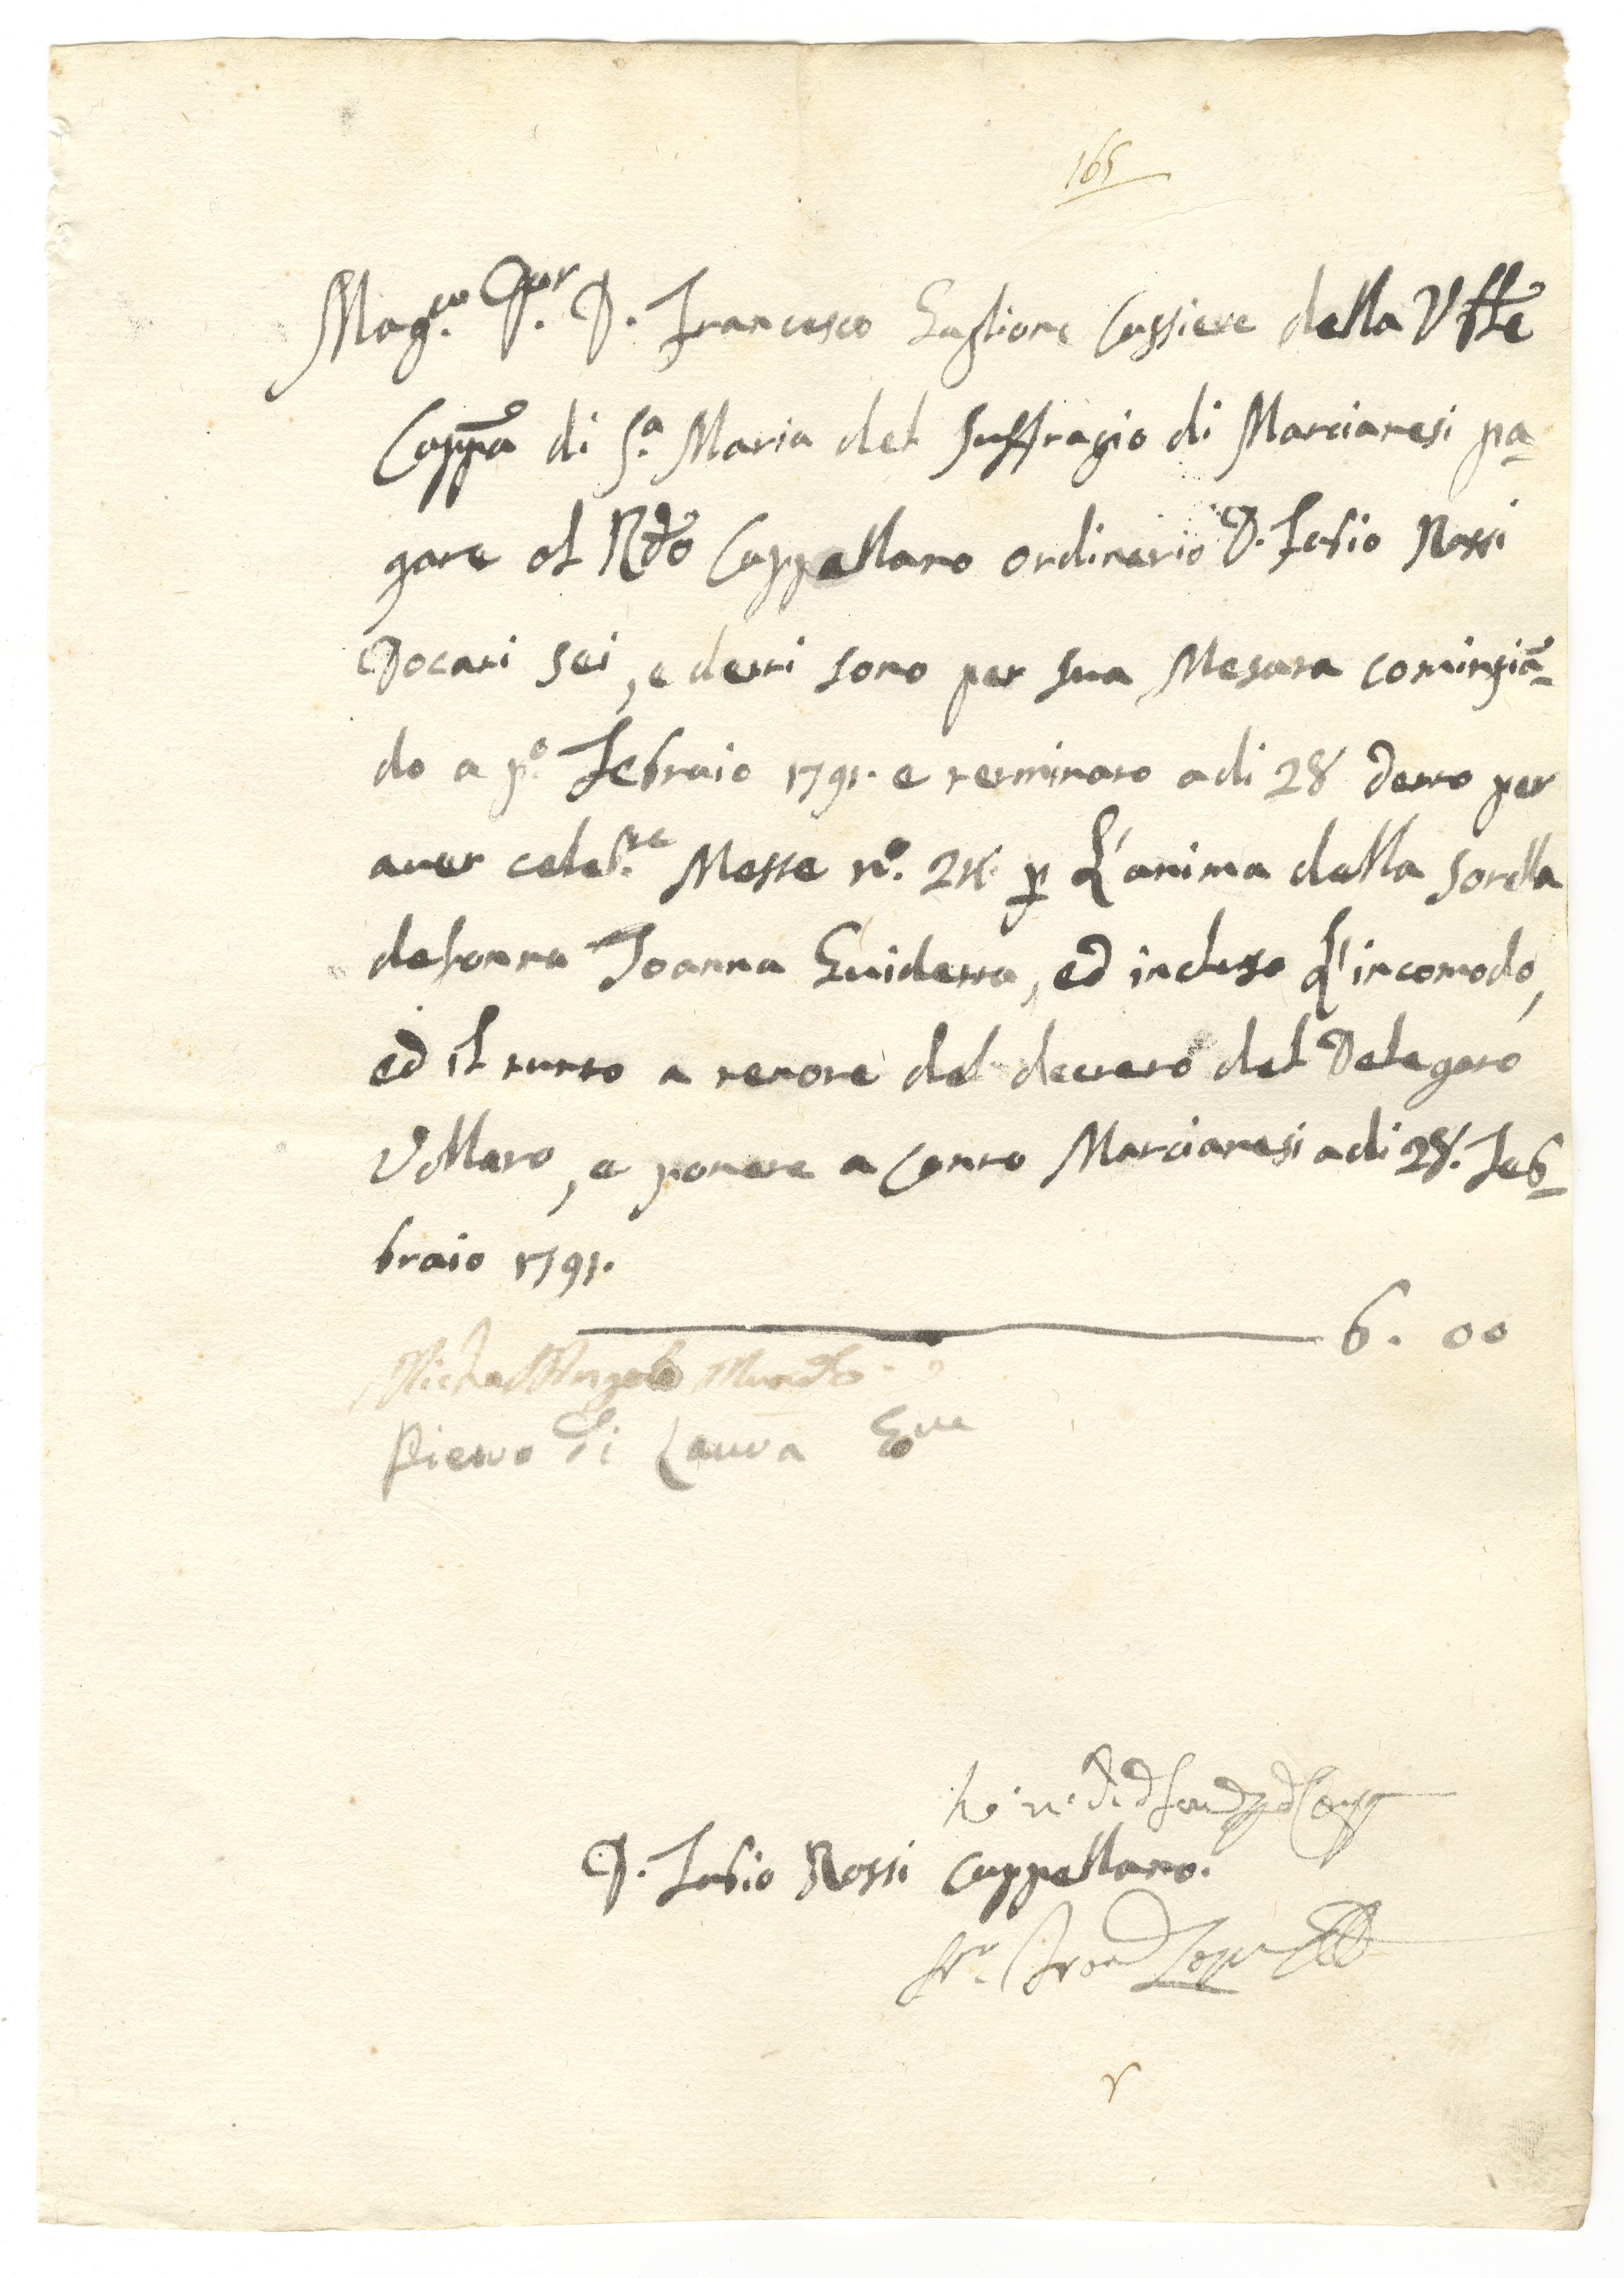 165
Mag.co D.or D. Francesco Guglione Cassiere della V.ffe
Cappa di S.a Maria del Suffragio di Marcianesi pa-
gare al Rdo Cappellano ordinario D. Fabio Rossi
Docati sei, e detti sono per sua Mesata cominsian-
do a p.o Febraio 1791. e terminato a di 28 detto per
aver celeb.te Messe n.o 24. p L'anima della sorella
defonta Joanna Guidetta, ed incluso L'incomodo,
ed il tutto a tenore del decreto del Delegato
Vollaro, e ponete a Conto Marcianesi a di 28. Feb-
braio 1791.
6. 00
Michel'Angelo
Pietro di Laura Gov.re
D. Fabio Rossi Cappellano.